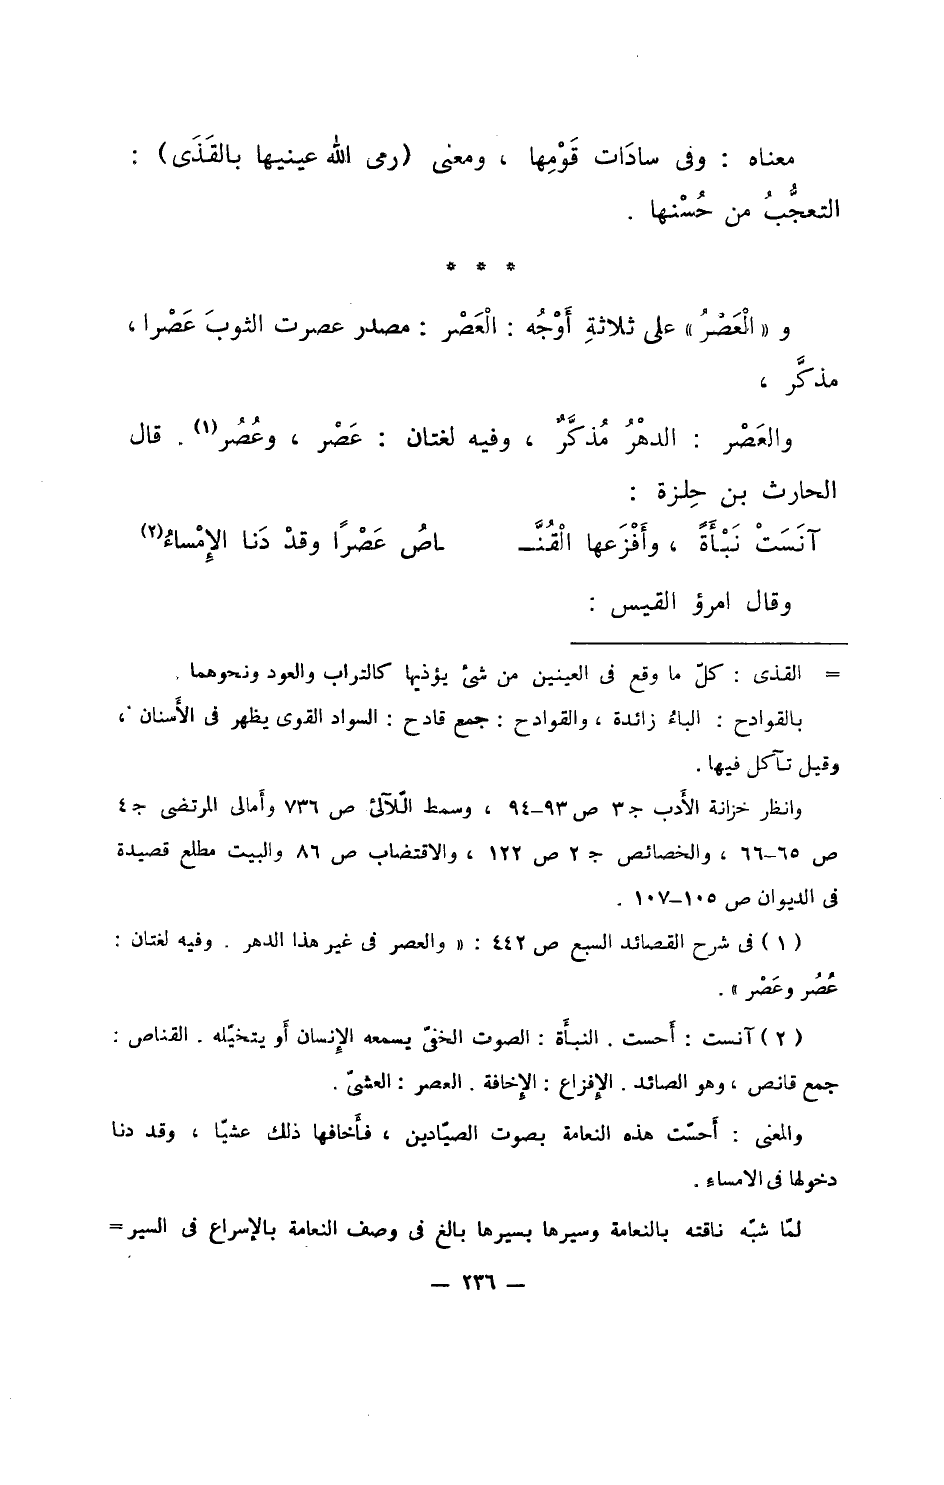 معناه : وفى سادَات قَوْمِها ، ومعنى (رمى الله عينيها بالقَذَى) :
التعجُّبُ من حُسْنها .
* * *
و « الْعَصْرُ » على ثلاثةِ أَوْجُه : الْعَصْر : مصدر عصرت الثوبَ عَصْرا ،
مذكَّر ،
والعَصْر : الدهْرُ مُذكَّرٌ ، وفيه لغتان : عَصْر ، وعُصُر(١) . قال
الحارث بن حِلزة :
آنَسَتْ نَبْأَةً ، وأَفْزَعها الْقُنَّـ ـاصُ عَصْرًا وقدْ دَنا الإِمْساءُ(٢)
وقال امرؤ القيس :
= القذى : كلّ ما وقع فى العينين من شئ يؤذيها كالتراب والعود ونحوهما .
بالقوادح : الباءُ زائدة ، والقوادح : جمع قادح : السواد القوى يظهر فى الأَسنان ،
وقيل تآكل فيها .
وانظر خزانة الأَدب جـ٣ ص٩٣-٩٤ ، وسمط الّلآلئ ص ٧٣٦ وأمالى المرتضى جـ٤
ص ٦٥-٦٦ ، والخصائص جـ ٢ ص ١٢٢ ، والاقتضاب ص ٨٦ والبيت مطلع قصيدة
فى الديوان ص ١٠٥-١٠٧ .
(١) فى شرح القصائد السبع ص ٤٤٢ : « والعصر فى غير هذا الدهر . وفيه لغتان :
عُصُر وعَصْر » .
(٢) آنست : أَحست . النبأَة : الصوت الخفىّ يسمعه الإِنسان أَو يتخيّله . القناص :
جمع قانص ، وهو الصائد . الإِفزاع : الإِخافة . العصر : العشىّ .
والمعنى : أَحسّت هذه النعامة بصوت الصيّادين ، فأَخافها ذلك عشيّا ، وقد دنا
دخولها فى الامساء .
لمّا شبّه ناقته بالنعامة وسيرها بسيرها بالغ فى وصف النعامة بالإسراع فى السير =
— ٢٣٦ —